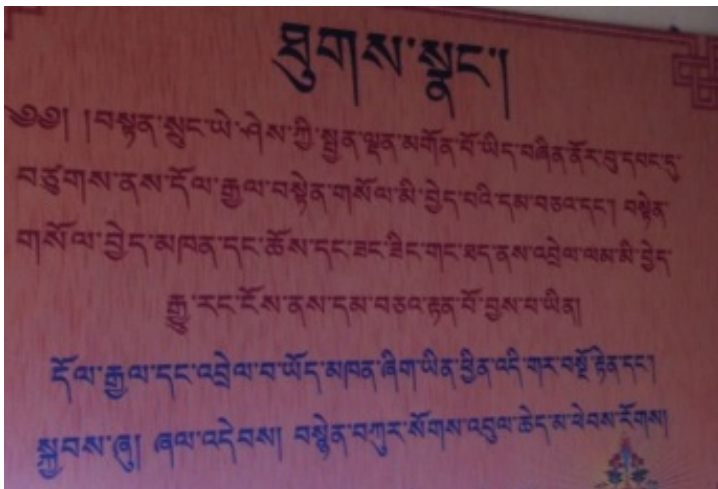 ཐུགས་སྣང་།
༄༅། །བསྟན་སྲུང་ཡེ་ཤེས་ཀྱི་སྤྱན་ལྡན་མགོན་པོ་ཡིད་བཞིན་ནོར་བུ་དབང་དུ་
བཙུགས་ནས་དོལ་རྒྱལ་བསྟེན་གསོལ་མི་བྱེད་པའི་དམ་བཅའ་དང་། བསྟེན་
གསོལ་བྱེད་མཁན་དང་ཆོས་དང་ཟང་ཟིང་གང་ཐད་ནས་འབྲེལ་ལམ་མི་བྱེད་
རྒྱུ་རང་ངོས་ནས་དམ་བཅའ་རྟན་པོ་བྱས་པ་ཡིན།
དོལ་རྒྱལ་དང་འབྲེལ་བ་ཡོད་མཁན་ཞིག་ཡིན་ཕྱིན་འདི་གར་བསྔོ་རྟེན་དང་།
སྐྱབས་ཞུ། ཞལ་འདེབས། བསྙེན་བཀུར་སོགས་འབུལ་ཆེད་མ་ཕེབས་རོགས།